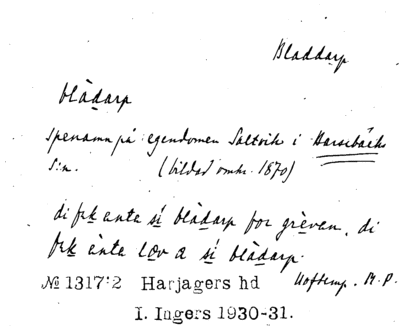 Bladdarp
blàdarp
Spenamn på egendomen Saltvik i Barsebäcks
S:n. (bildad omkr. 1870)
di fek ånte sí blàdarp for grèven, di
fek ånte lov a sí blàdarp.
№ 1317:2 Harjagers hd Hoftemp. M. P.
I. Ingers 1930-31.